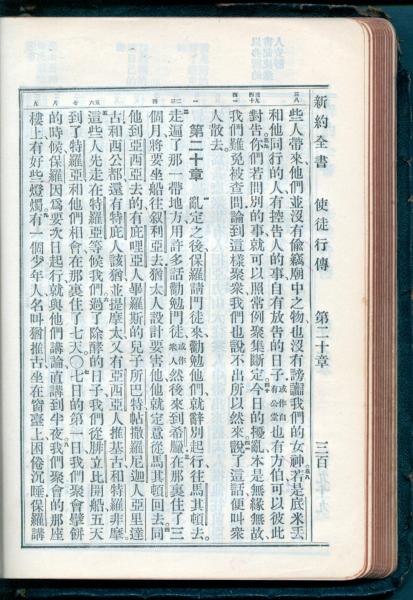 新約全書 使徒行傳 第二十章 三百
些人帶來他們並沒有偷竊廟中之物也沒有謗讟我們的女神若是底米丟
和他同行的人有控告人的事自有放告的日子或作自有公堂也有方伯可以彼此
對告你們若問別的事就可以照常例聚集斷定今日的擾亂本是無緣無故
我們難免被查問論到這樣聚眾我們也說不出所以然來說了這話便叫眾
人散去
第二十章 亂定之後保羅請門徒來勸勉他們就辭別起行往馬其頓去
走遍了那一帶地方用許多話勸勉門徒或作眾人然後來到希臘在那裏住了三
個月將要坐船往叙利亞去猶太人設計要害他他就定意從馬其頓回去同
他到亞西亞去的有庇哩亞人畢羅斯的兒子所巴特帖撒羅尼迦人亞里達
古和西公都還有特庇人該猶並提摩太又有亞西亞人推基古和特羅非摩
這些人先走在特羅亞等候我們過了除酵的日子我們從腓立比開船五天
到了特羅亞和他們相會在那裏住了七天〇七日的第一日我們聚會擘餅
的時候保羅因為要次日起行就與他們講論直講到半夜我們聚會的那座
樓上有好些燈燭有一個少年人名叫猶推古坐在窗臺上困倦沉睡保羅講